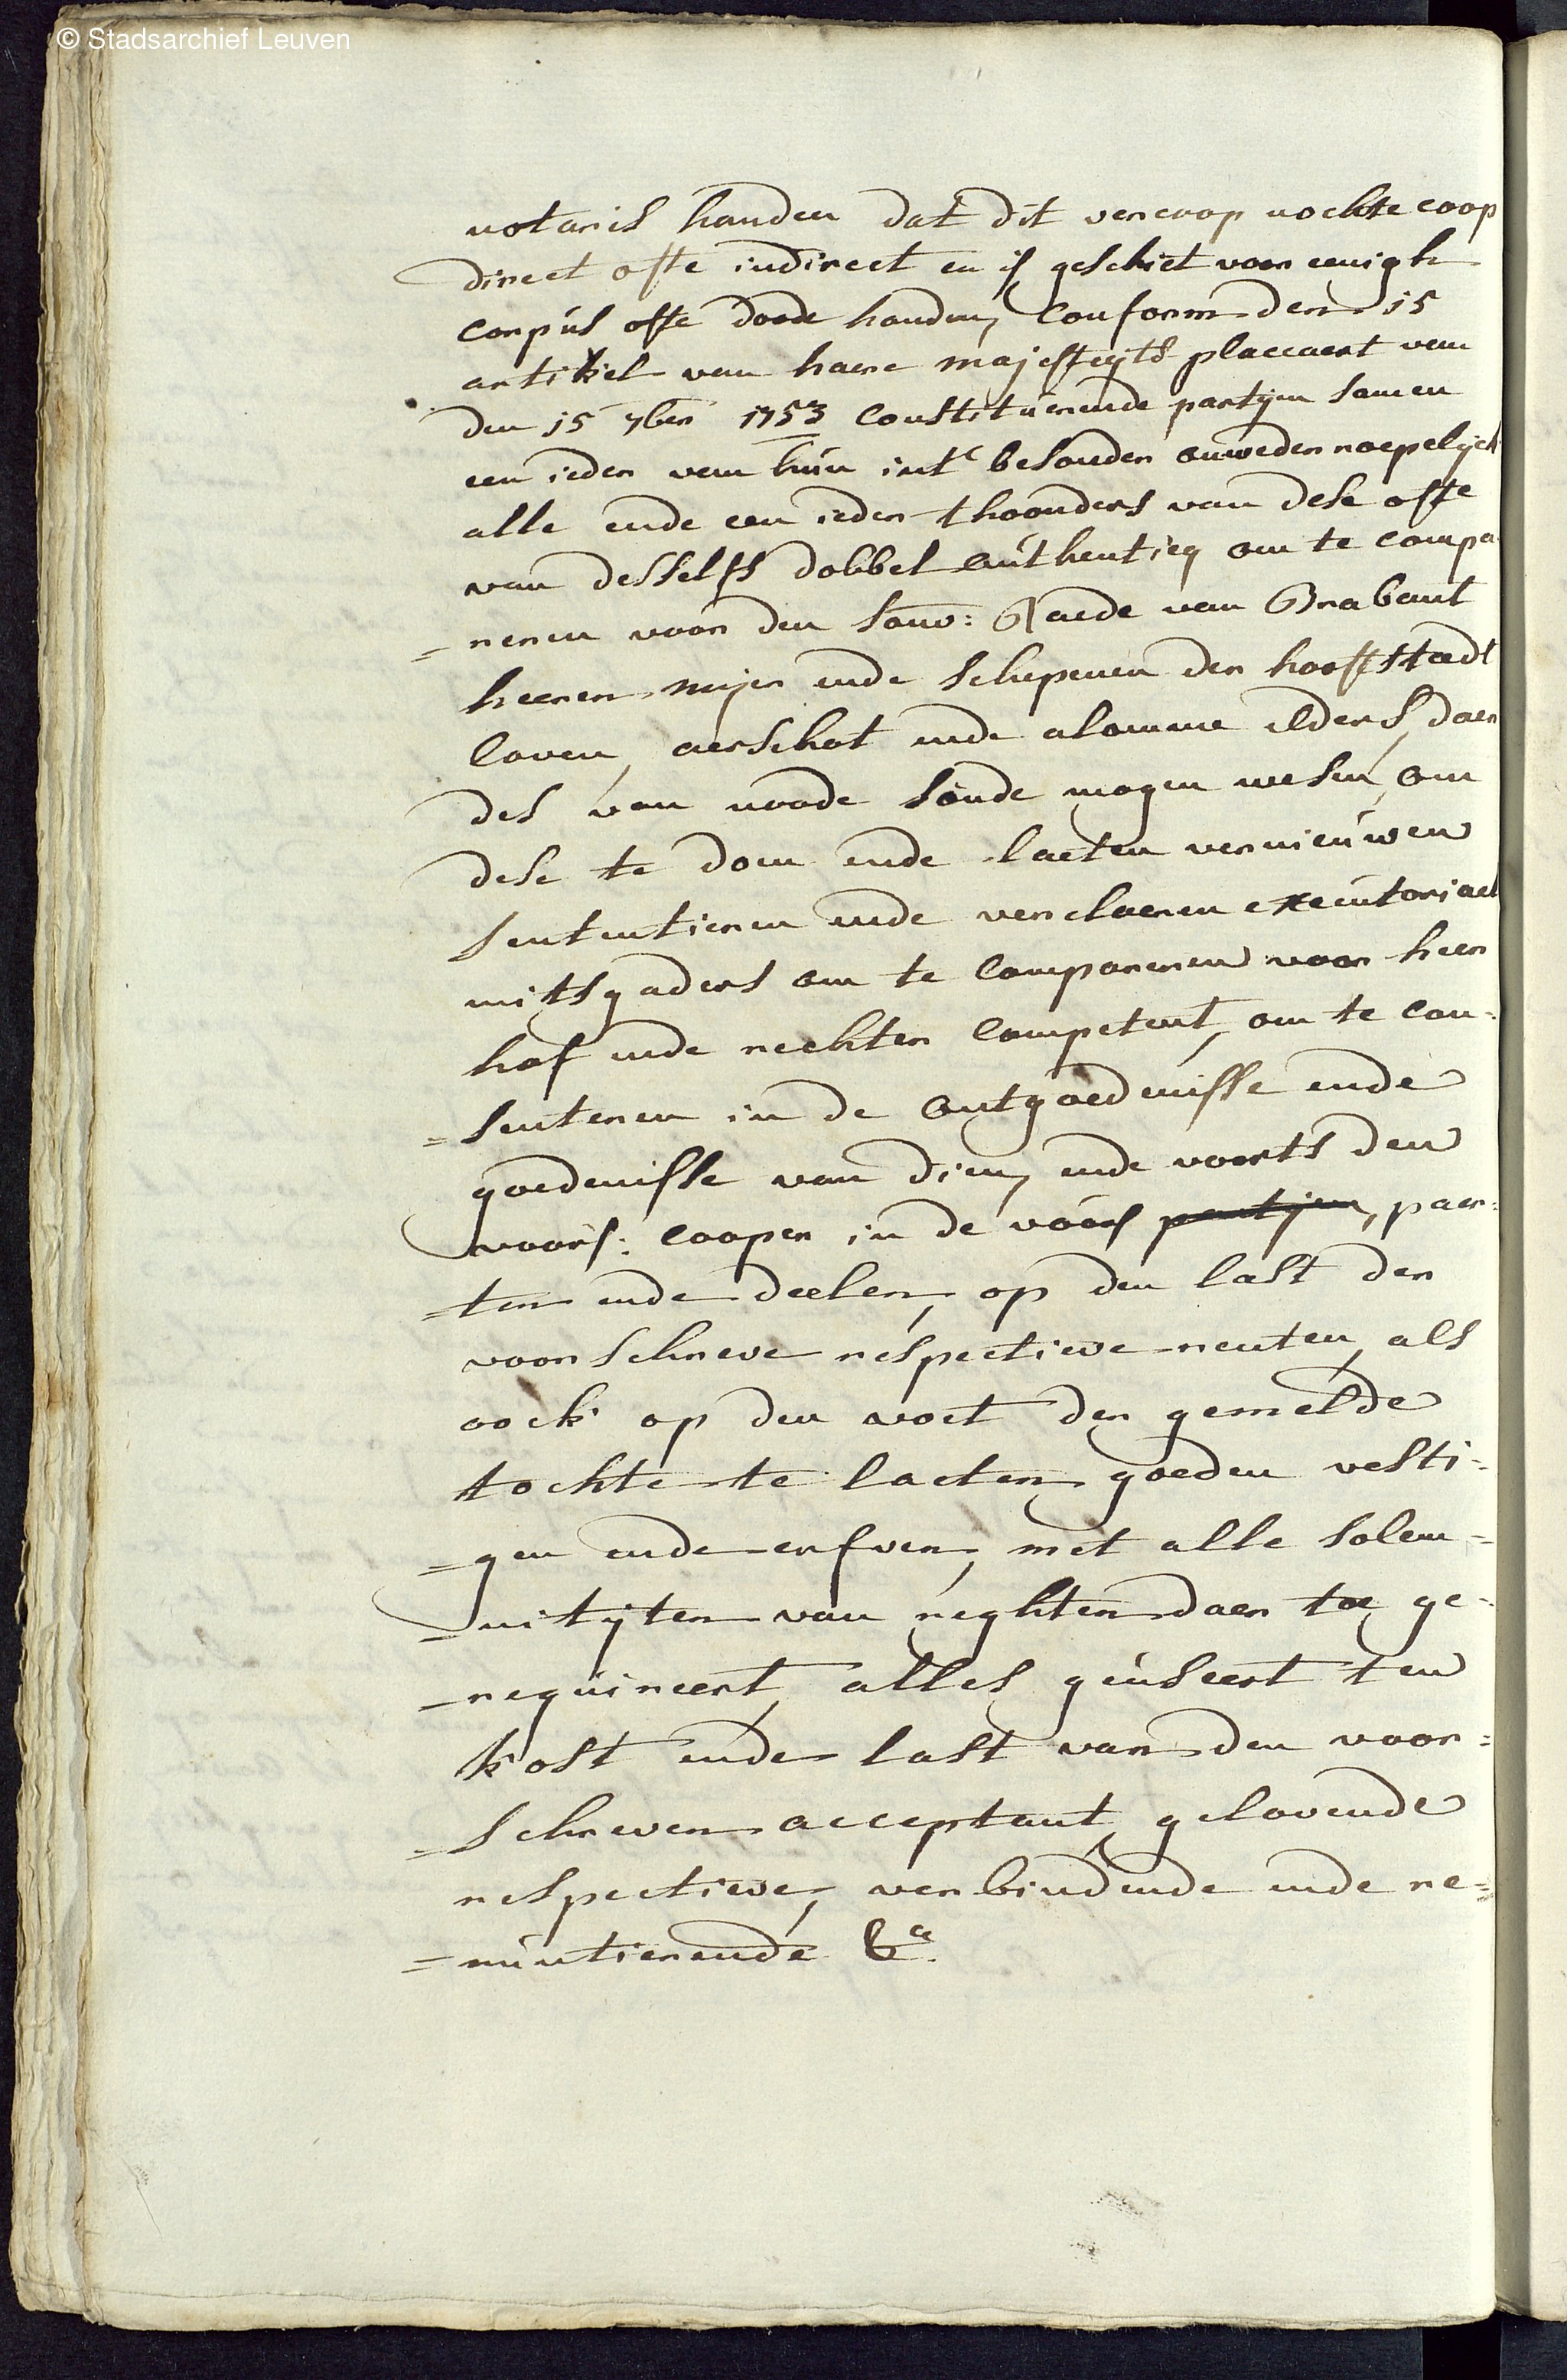 © Stadsarchief Leuven
notaris handen dat dit vercoop nochte coop
direct ofte indirect en is geschiet voor eenigh
corpus ofte doode handen, conform den 15
artikel van haere majesteyts placcaert van
den 15 7ber 1753 constituerende partijen samen
een ieder van hun int besonder onwederroepelijck
alle ende een ieder thoonders van dese ofte
van desselfs dobbel authentiecq om te compa
=reren voor den souv: Raede van Brabant
heeren mijer ende schepenen der hooftstadt
loven, aerschot ende alomme elders, daer
des van noode soude mogen wesen, om
dese te doen ende laeten vernieuwen
sententieren ende verclaeren executoriael
mitsgaders om te compareren voor heer
hof ende rechter competent, om te con=
=senteren in de ontgoedenisse ende
goedenisse van dien, ende voorts den
voors: cooper in de voors partijen, paer=
=ten ende deelen, op den last der
voorschreve respective renten, als
oock op den voet der gemelde
tochte te laeten goeden vesti=
=gen ende erfven, met alle solem=
=nitijten van reghten daer toe ge=
=requireert, alles geuseert ten
kost ende last van den voor=
=schreven acceptant, gelovende
respective, verbindende ende re=
=nuntierende &a.